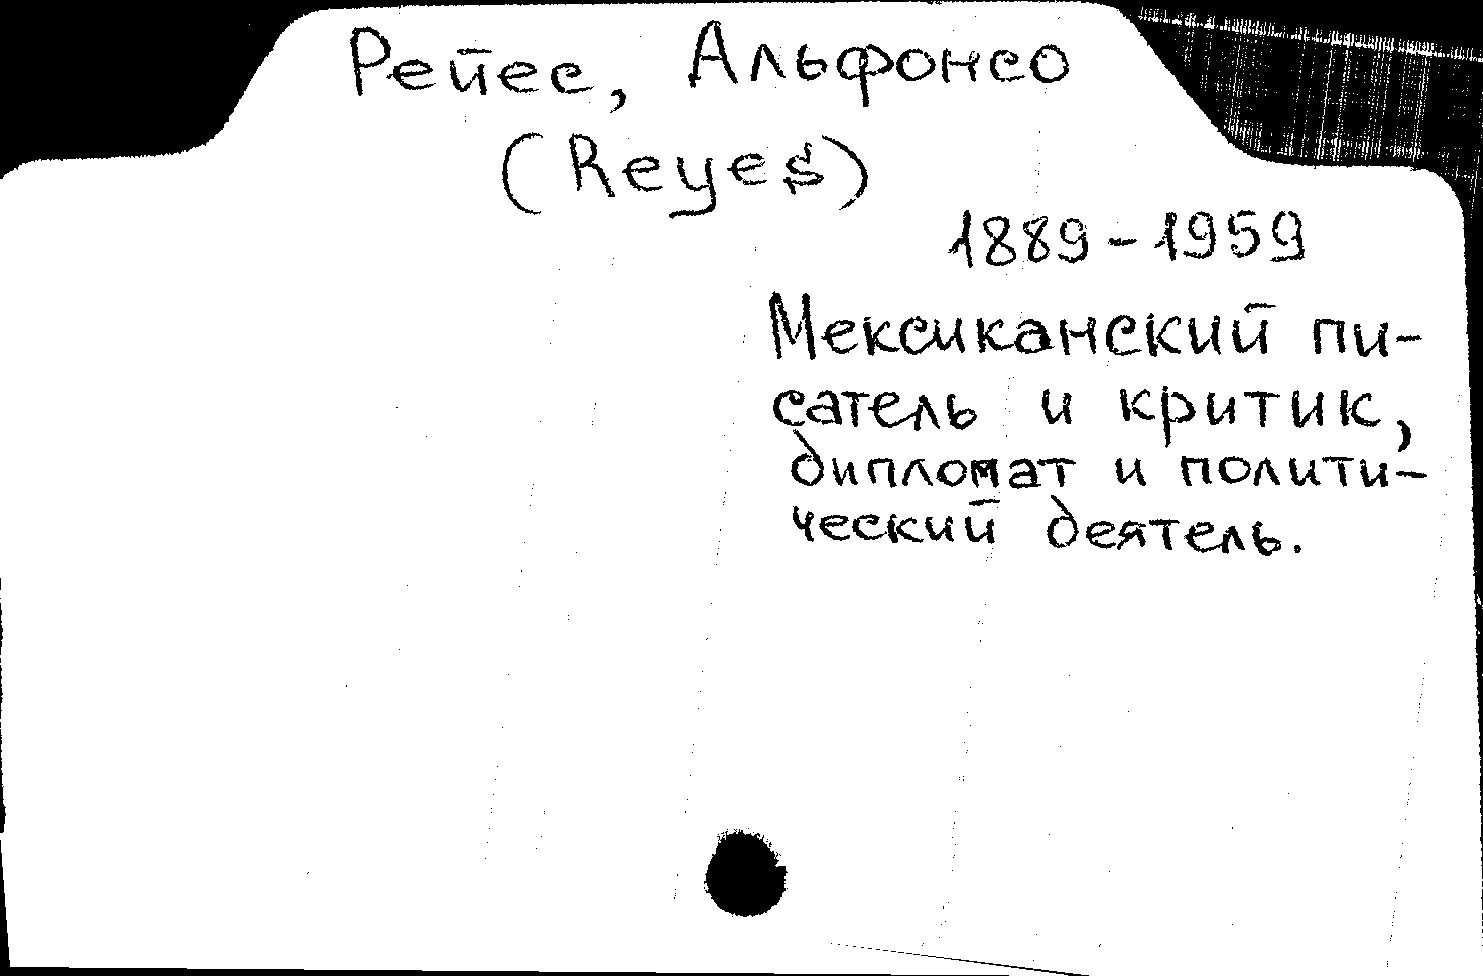 Рейес, Альфонсо
(Reyes)
1889-1959
Мексиканский пи-
сатель и критик,
дипломат и полити-
ческий деятель.